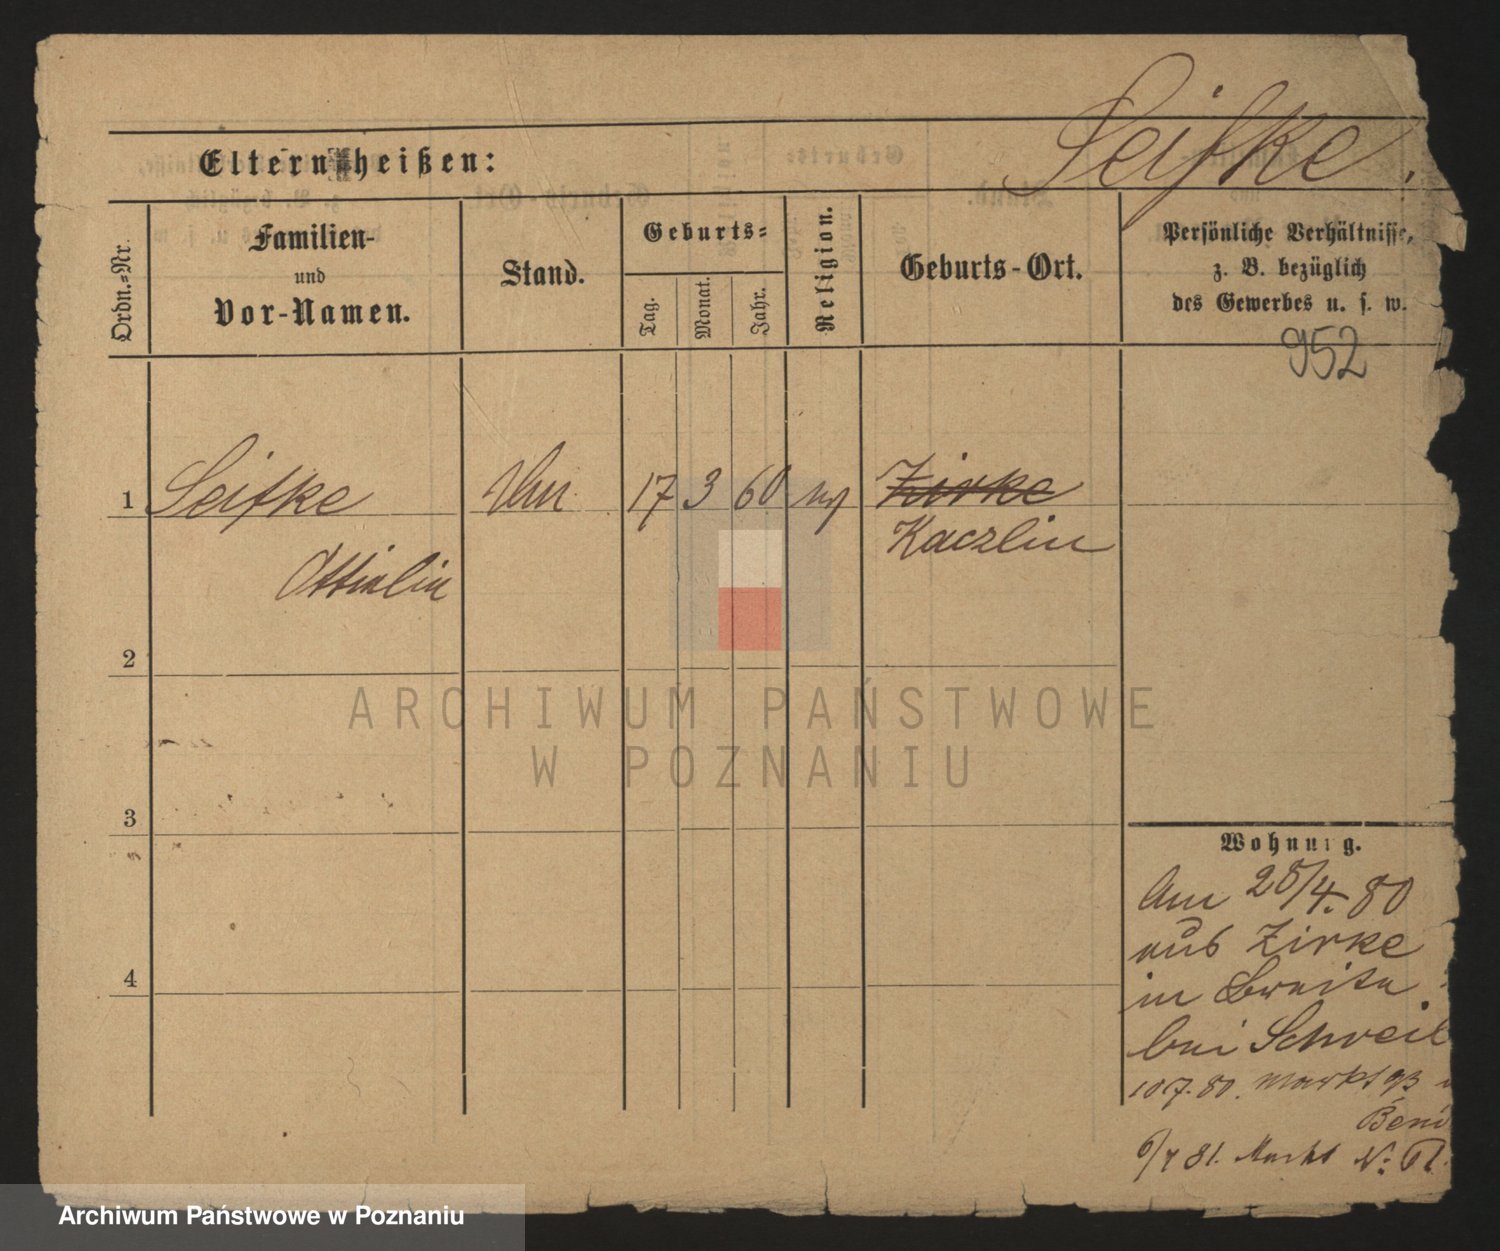 Seifke.
Eltern heißen:
Ordn.-Nr.
Familien-
und
Vor-Namen.
Stand.
Geburts-
Tag.
Monat.
Jahr.
Religion.
Geburts-Ort.
Persönliche Verhältnisse,
z. B. bezüglich
des Gewerbes u. s. w.
952
1 Seifke 17 3 60 Zirke
Kaczlin
2
3
4
Wohnung.
Am 28/4. 80
aus Zirke
in Breite
bei Schreib
10 7. 80. Markt 93
6/4 81. Markt No:
ARCHIWUM PAŃSTWOWE
W POZNANIU
Archiwum Państwowe w Poznaniu